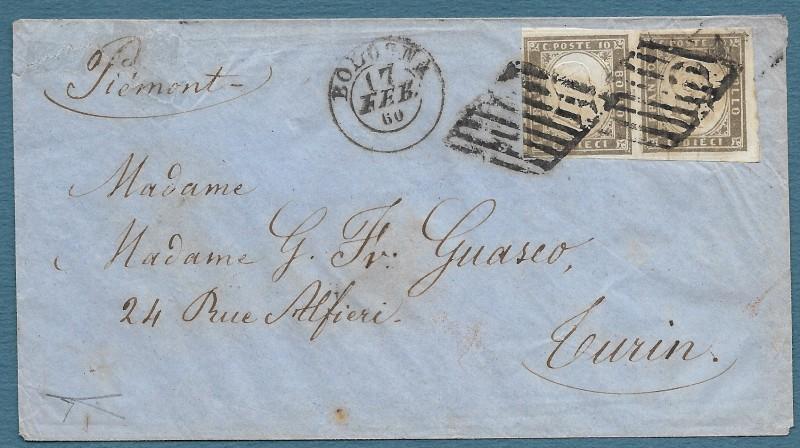 Piémont
BOLOGNA
17
FEB.
60
C. POSTE 10
DIECI
DIECI
Madame
Madame G. Fr. Guasco,
24 Rue Alfieri.
Turin.